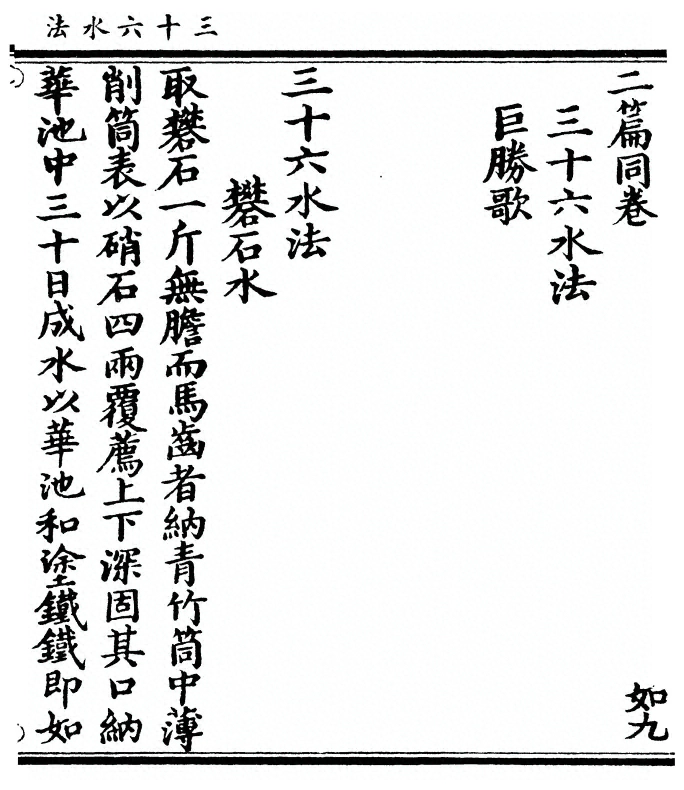 三十六水法
二篇同卷
如九
三十六水法
巨勝歌
三十六水法
礬石水
取礬石一斤無膽而馬齒者納青竹筒中薄
削筒表以硝石四兩覆薦上下深固其口納
華池中三十日成水以華池和塗鐵鐵即如